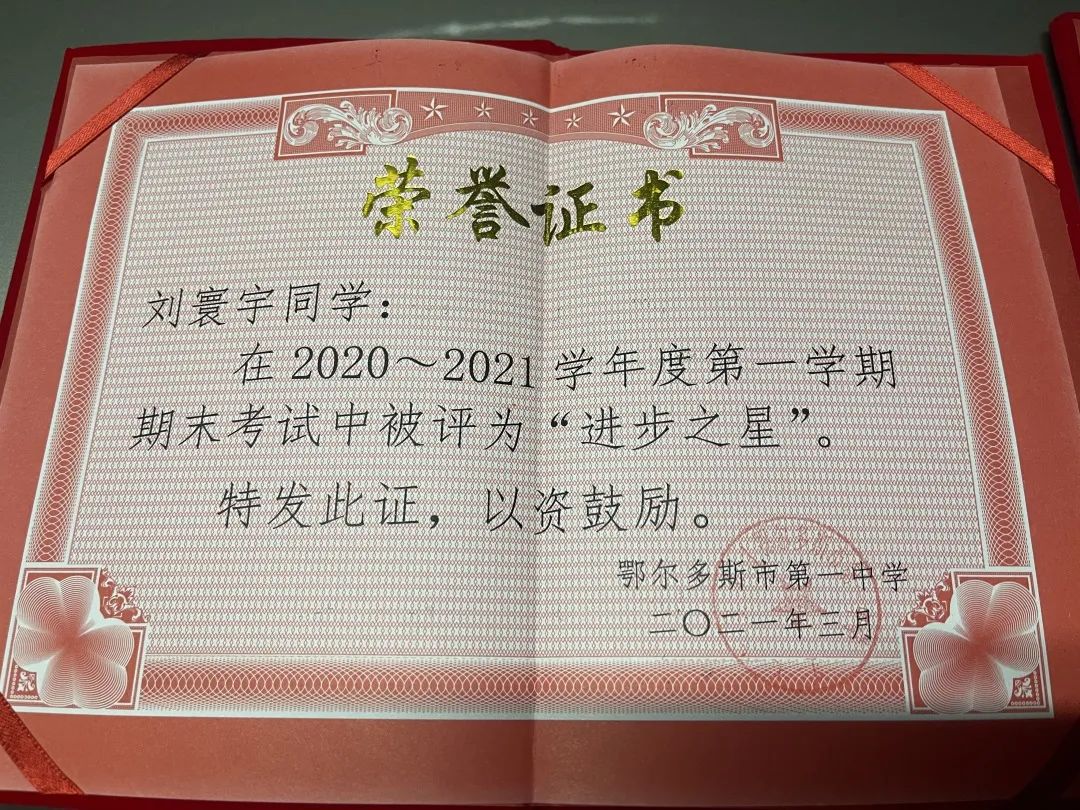 荣誉证书
刘寰宇同学：
在2020～2021学年度第一学期
期末考试中被评为“进步之星”。
特发此证，以资鼓励。
鄂尔多斯市第一中学
二〇二一年三月